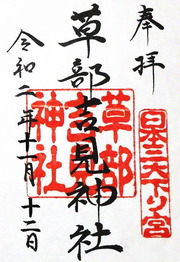 奉拝
日本三大下り宮
草部吉見神社
草部
吉見
神社
令和二年十一月十二日